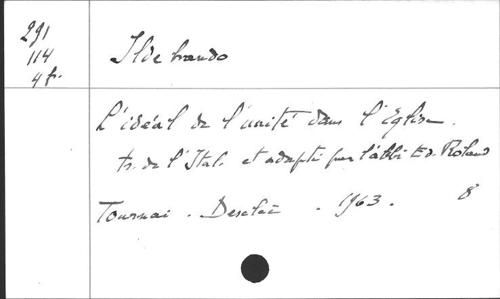 291
114
4 fr.
Ildebrando
L'idéal de l'unité dans l'Eglise.
tr. de l'Ital. et adapté par l'abbé Ed. Roland
Tournai. Desclée. 1963. 8